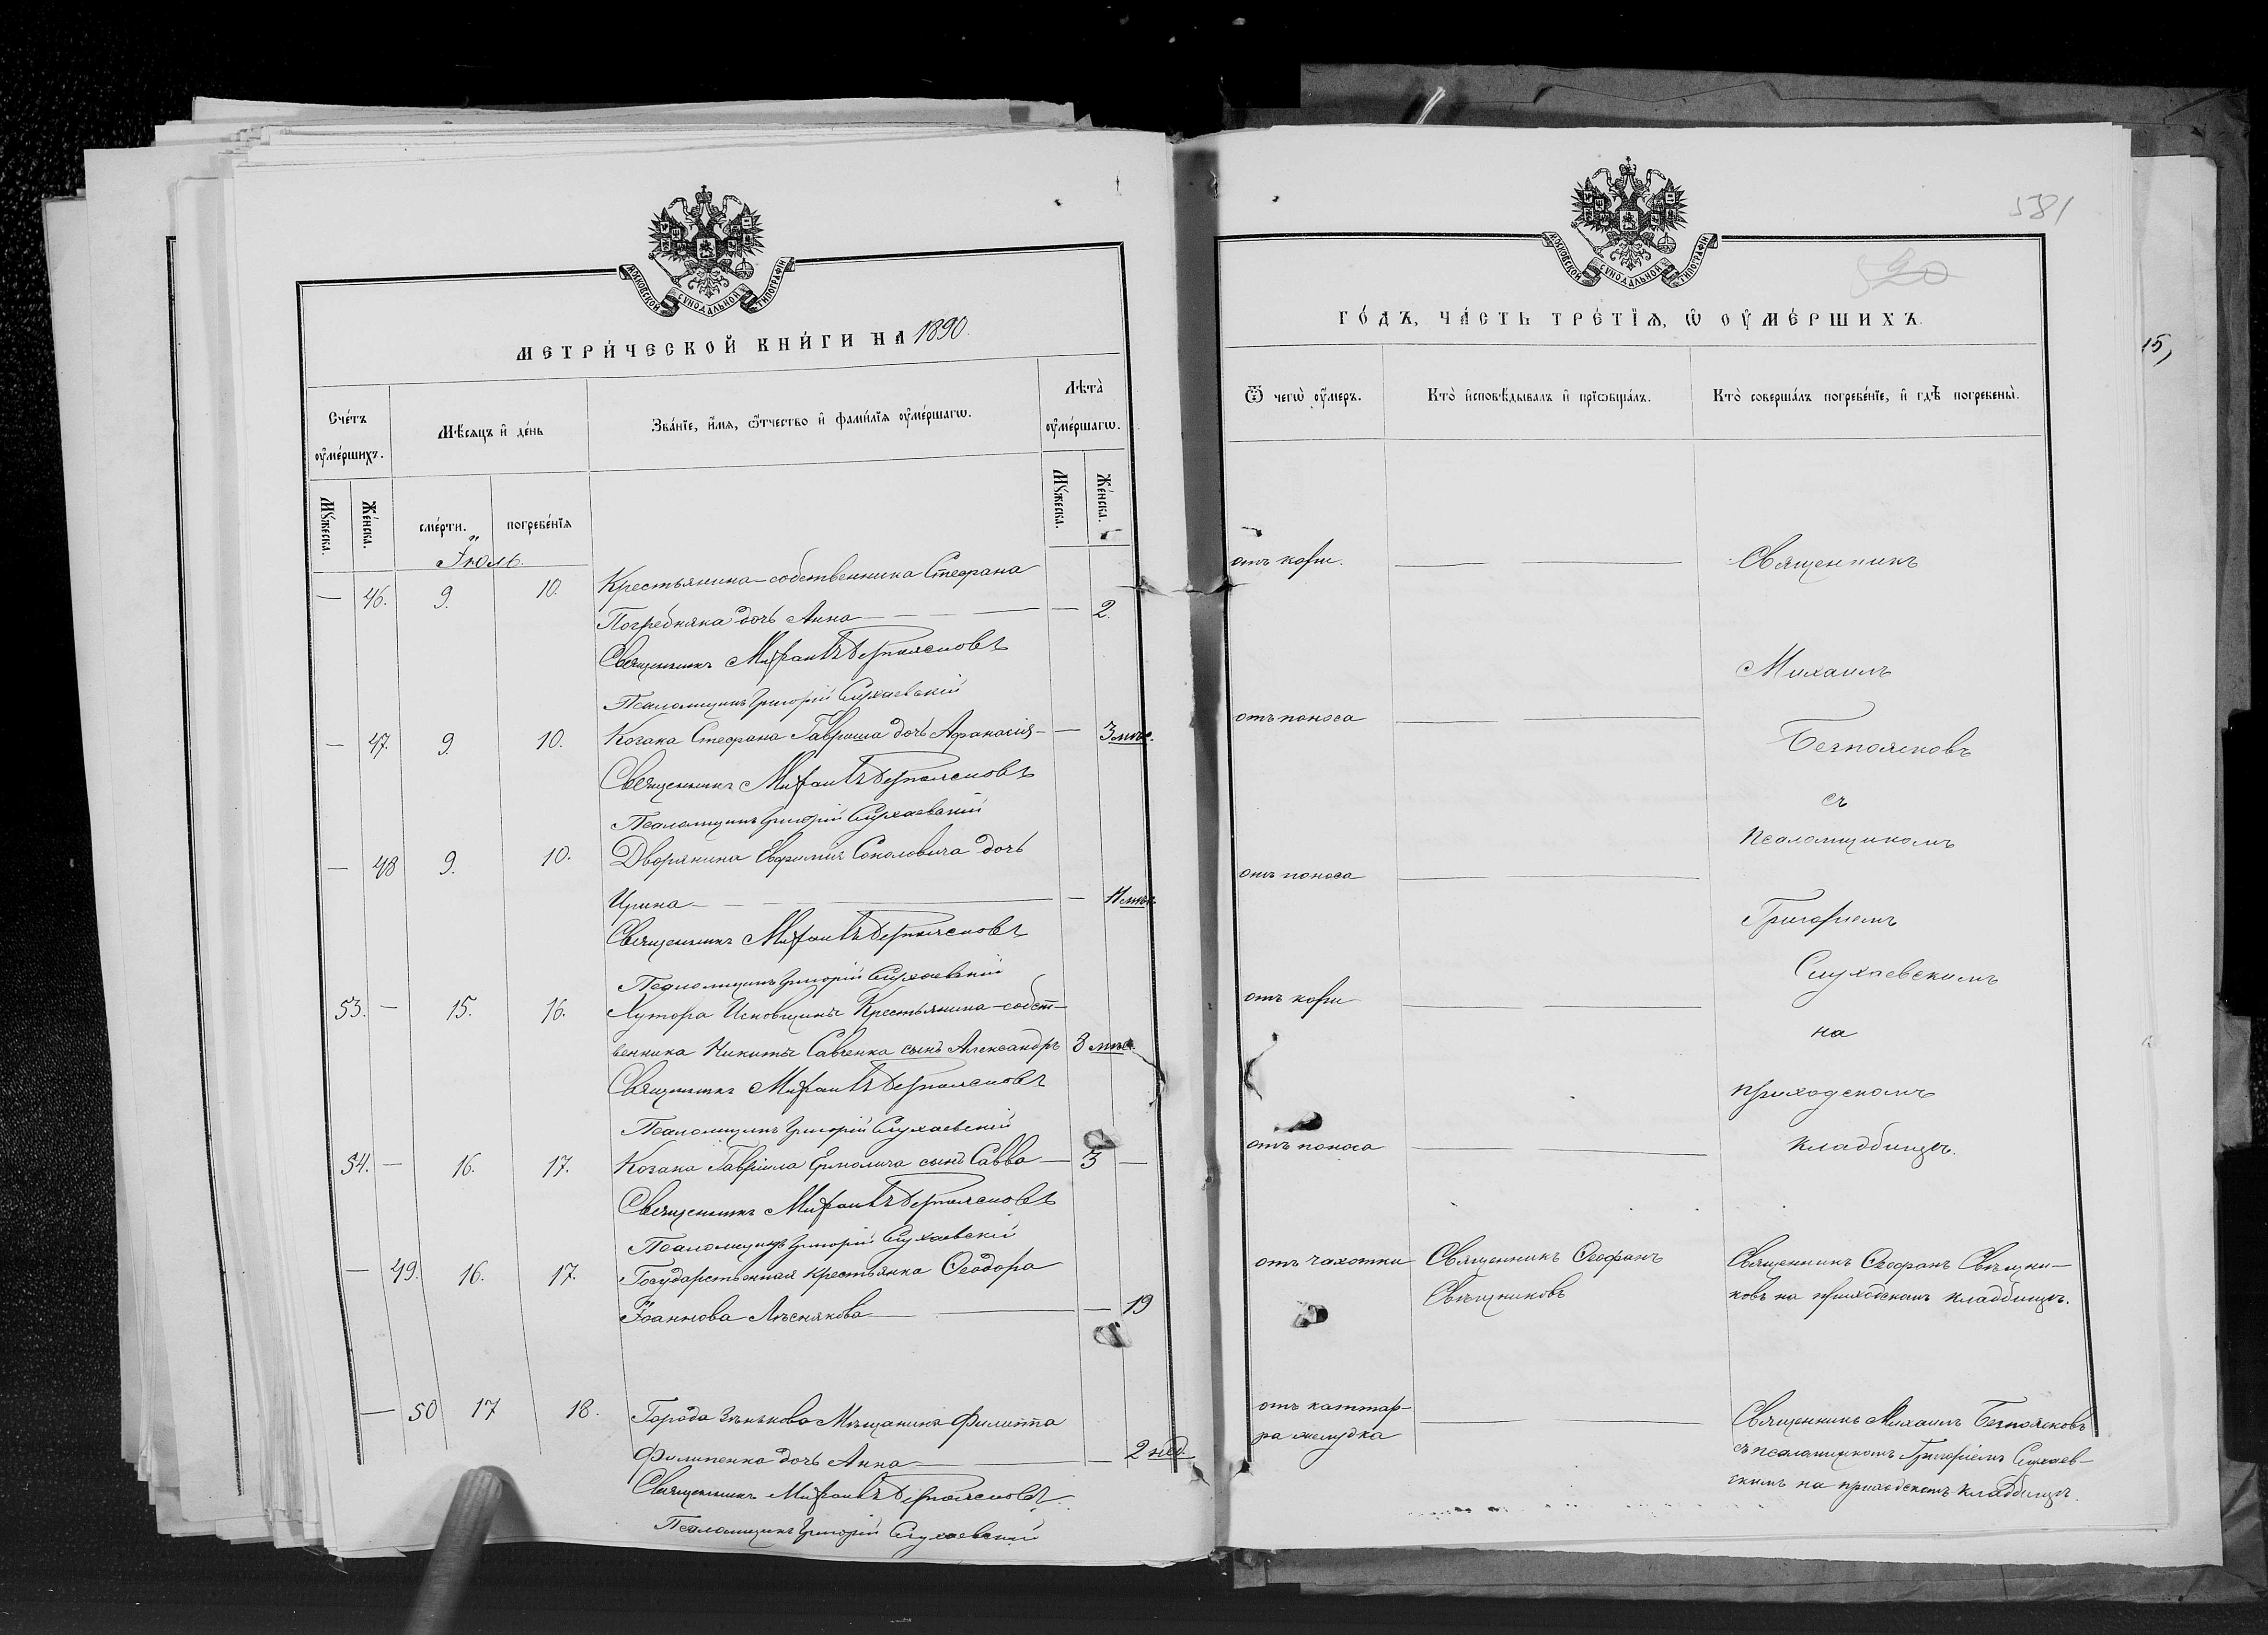 МОСКОВСКОЙ СѴНОДАЛЬНОЙ ТИПОГРАФІИ
МЕТРИ́ЧЕСКОЙ КНИ́ГИ НА 1890.
Сче́тъ ᲂу҆ме́ршихъ.
Мѣ́сяцъ и҆ де́нь
Зва́нїе, и҆́мѧ, ѻ҆́тчество и҆ фами́лїѧ ᲂу҆ме́ршагѡ.
Лѣта̀ ᲂу҆ме́ршагѡ.
Мꙋ́жеска.
Же́нска.
сме́рти.
погребе́нїѧ
Мꙋ́жеска.
Же́нска.
Іюль.
— 46. 9. 10. Крестьянина-собственника Стефана
Погребняка дочь Анна — — 2.
Священникъ Михаилъ Безпоясковъ
Псаломщикъ Григорій Слухаевскій
— 47. 9. 10. Козака Стефана Гавриша дочь Афанасія — — 3 мѣс.
Священникъ Михаилъ Безпоясковъ
Псаломщикъ Григорій Слухаевскій
— 48 9. 10. Дворянина Евфимія Соколовича дочь
Ирина — — 11 мѣс.
Священникъ Михаилъ Безпоясковъ
Псаломщикъ Григорій Слухаевскій
53. — 15. 16. Хутора Исковщины Крестьянина-собст-
венника Никиты Савченка сынъ Александръ 8 мѣс.
Священникъ Михаилъ Безпоясковъ
Псаломщикъ Григорій Слухаевскій
54. — 16. 17. Козака Гавріила Ермолича сынъ Савва — 3 —
Священникъ Михаилъ Безпоясковъ
Псаломщикъ Григорій Слухаевскій
— 49. 16. 17. Государственная крестьянка Ѳеодора
Іоаннова Лѣснякова — — 19
— 50 17 18. Города Зѣнькова Мѣщанина Филиппа
Филипенка дочь Анна — — 2 нед.
Священникъ Михаилъ Безпоясковъ.
Псаломщикъ Григорій Слухаевскій
581
520
МОСКОВСКОЙ СѴНОДАЛЬНОЙ ТИПОГРАФІИ
ГО́ДЪ, ЧА́СТЬ ТРЕ́ТЇѦ, Ѡ҆ ОУ҆МЕ́РШИХЪ.
Ѿ чегѡ̀ ᲂу҆́меръ.
Кто̀ и҆сповѣ́дывалъ и҆ прїѡбща́лъ.
Кто̀ соверша́лъ погребе́нїе, и҆ гдѣ̀ погребены̀.
отъ кори. — —
Священникъ
Михаилъ
отъ поноса — —
Безпоясковъ
съ
псаломщикомъ
отъ поноса — —
Григоріемъ
Слухаевскимъ
отъ кори — —
на
приходскомъ
отъ поноса — —
кладбищѣ.
отъ чахотки Священникъ Ѳеофанъ
Свѣщниковъ
Священникъ Ѳеофанъ Свѣщни-
ковъ на приходскомъ кладбищѣ.
отъ каттар-
ра желудка —
Священникъ Михаилъ Безпоясковъ
съ псаломщикомъ Григоріемъ Слухаев-
скимъ на приходскомъ кладбищѣ.
15,